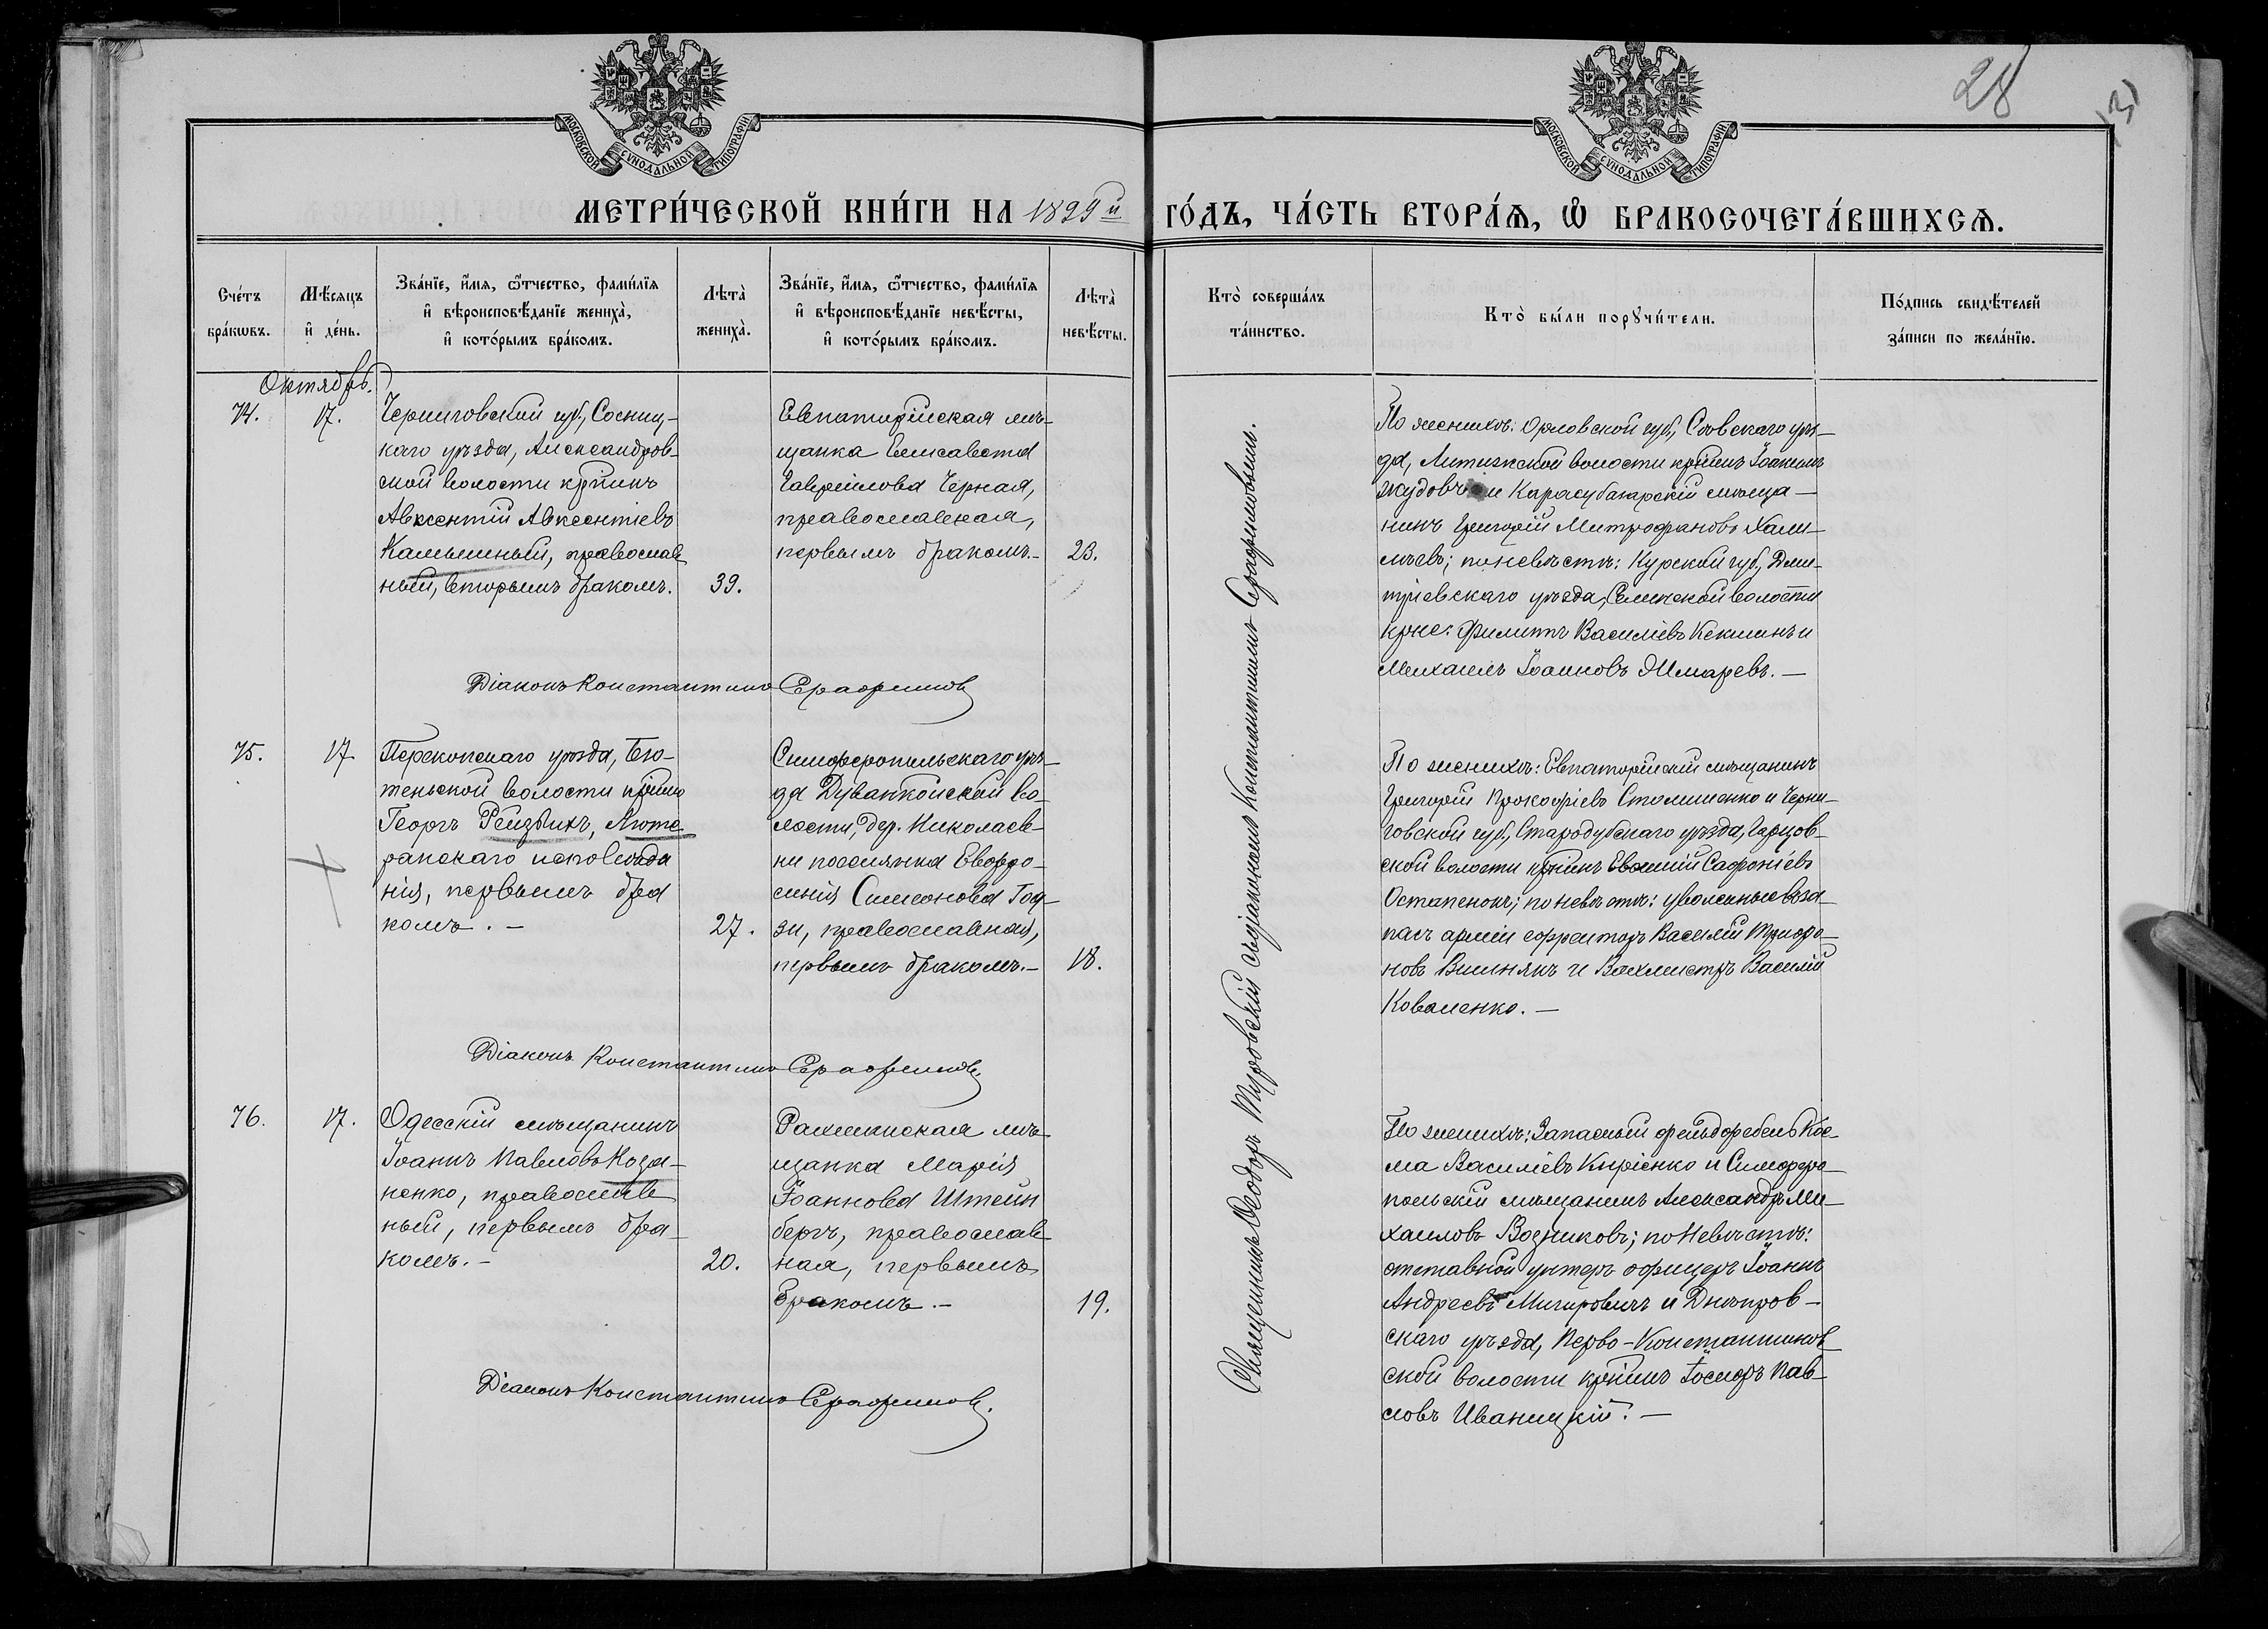 28
МОСКОВСКОЙ СѴНОДАЛЬНОЙ ТИПОГРАФІИ
МОСКОВСКОЙ СѴНОДАЛЬНОЙ ТИПОГРАФІИ
МЕТРИ́ЧЕСКОЙ КНИ́ГИ НА 1899й ГО́ДЪ, ЧА́СТЬ ВТОРА́Ѧ, Ѡ҆ БРАКОСОЧЕТА́ВШИХСѦ.
Сче́тъ
бра́кѡвъ.
Мѣ́сяцъ
и҆ де́нь.
Зва́нїе, и҆́мѧ, ѻ҆́тчество, фами́лїѧ
и҆ вѣроисповѣ́данїе жениха̀,
и҆ кото́рымъ бра́комъ.
Лѣта̀
жениха̀.
Зва́нїе, и҆́мѧ, ѻ҆́тчество, фами́лїѧ
и҆ вѣроисповѣ́данїе невѣ́сты,
и҆ кото́рымъ бра́комъ.
Лѣта̀
невѣ́сты.
Кто̀ соверша́лъ
та́инство.
Кто̀ бы́ли порꙋчи́тели.
По́дпись свидѣ́телей
за́писи по жела́нїю.
Октябрь.
74.
17.
Черниговской губ., Сосниц-
каго уѣзда, Александров-
ской волости кр̃нинъ
Авксентій Авксентіевъ
Камышный, православ
ный, вторымъ бракомъ.
39.
Евпаторійская мѣ-
щанка Елисавета
Гавріилова Черная,
православная,
первымъ бракомъ.-
23.
По женихѣ: Орловской губ., Сѣвскаго уѣз-
да, Литижской волости кр̃нинъ Іоаннъ
Жудовъ и Карасубазарскій мѣща-
нинъ Григорій Митрофановъ Хали-
мѣевъ; по невѣстѣ: Курской губ., Дми-
тріевскаго уѣзда, волости
кр̃не: Филиппъ Василіевъ Кекшинъ и
Михаилъ Іоанновъ Ямаревъ. —
Діаконъ Константинъ Серафимовъ
75.
17
Перекопскаго уѣзда, Бю-
теньской волости кр̃нинъ
Георгъ Рейзвихъ, Люте
ранскаго исповѣда
нія, первымъ бра
комъ. -
27.
Симферопольскаго уѣз-
да Дуванкойской во-
лости, дер. Николаев-
ки поселянка Евфро-
синія Симеонова Гоа-
зи, православная,
первымъ бракомъ.-
18.
По женихѣ: Евпаторійскій мѣщанинъ
Григорій Прокофіевъ Столишенко и Черни-
говской губ., Стародубскаго уѣзда, Гарцов-
ской волости кр̃нинъ Сафоніевъ
Остапенокъ; по невѣстѣ: уволенные въ за-
пасъ арміи ефрейторъ Василій Трифо-
новъ Вишнякъ и Вахмистръ Василій
Коваленко. —
Діаконъ Константинъ Серафимовъ
76.
17.
Одесскій мѣщанинъ
Іоаннъ Павловъ Коза-
ненко, православ
ный, первымъ бра-
комъ. -
20.
мѣ-
щанка Марія
Іоаннова Штейн
бергъ, православ-
ная, первымъ
бракомъ. -
19.
По женихѣ: Запасный фельдфебель Кос-
ма Василіевъ Кыріенко и Симферо-
польскій мѣщанинъ Александръ Ми-
хаиловъ Водниковъ; по невѣстѣ:
отставной унтеръ офицеръ Іоаннъ
Андреевъ Мигировичъ и Днѣпров-
скаго уѣзда, Перво-Константинов-
ской волости кр̃нинъ Іосифъ Пав-
ловъ Иваницкій. —
Діаконъ Константинъ Серафимовъ.
Священникъ Ѳеодоръ Туровскій съ діакономъ Константиномъ Серафимовымъ.